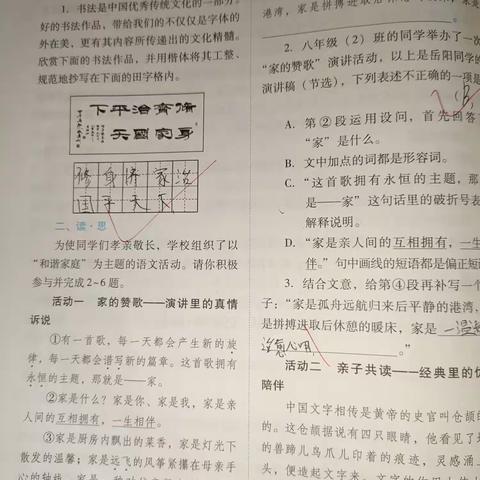 1. 书法是中国优秀传统文化的一部分。
好的作品，带给我们的不仅仅是字体的
外在美，更有其内容所传递出的文化精髓。
欣赏下面的书法作品，并用楷体将其工整、
规范地抄写在下面的田字格内。
下平治齊脩
天國家身
修身济家治
国平天下
二、读·思
为使同学们孝亲敬长，学校组织了以
“和谐家庭”为主题的语文活动。请你积极
参与并完成2~6题。
活动一 家的赞歌——演讲里的真情
诉说
①有一首歌，每一天都会产生新的旋
律，每一天都会谱写新的篇章。这首歌拥有
永恒的主题，那就是——家。
②家是什么？家是你、家是我，家是亲
人间的互相拥有，一生相伴。
③家是厨房内飘出的菜香，家是灯光下
散发的温馨；家是远飞的风筝紧攥在母亲手
心的轴线，家是一
港湾，家是拼搏进取后休
2. 八年级（2）班的同学举办了一次
“家的赞歌”演讲活动，以上是岳阳同学的
演讲稿（节选），下列表述不正确的一项是
（B
A. 第②段运用设问，首先回答
“家”是什么。
B. 文中加点的词都是形容词。
C. “这首歌拥有永恒的主题，那
是——家”这句话里的破折号表
解释说明。
D. “家是亲人间的互相拥有，一生
伴。”句中画线的短语都是偏正短
3. 结合文意，给第④段再补写一个
子：“家是孤舟远航归来后平静的港湾，
是拼搏进取后休憩的暖床，家是一温
治愈心田，。”
活动二 亲子共读——经典里的优
陪伴
中国文字相传是黄帝的史官叫仓颉的
的。这仓颉据说有四只眼睛，他看见了地
的兽蹄儿鸟爪儿印着的痕迹，灵感涌上
头，便造起文字来。